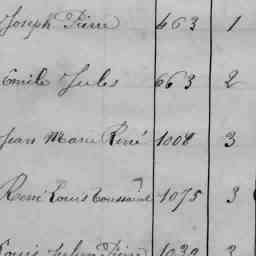 Joseph Pierre 463 1
Emile Jules 663 2
Jean Marie René 1008 3
René Louis Toussaint 1075 3
Louis Julien Pierre 1039 3